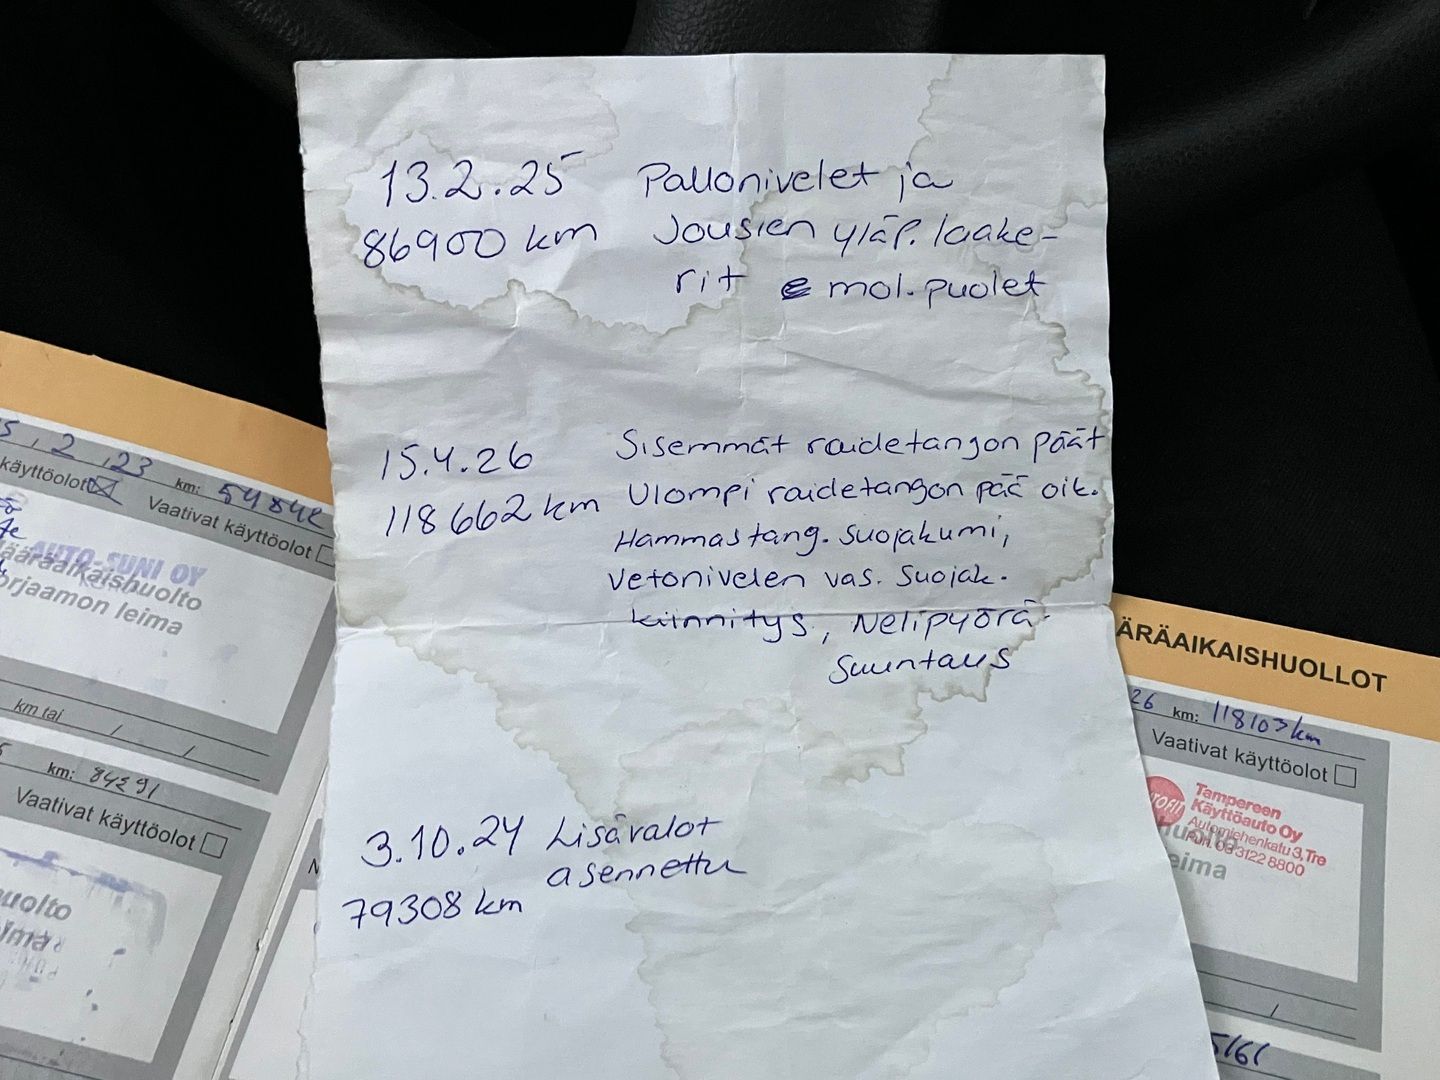 13.2.25 Pallonivelet ja
86900 km Jousien yläp. laake-
rit mol. puolet
15.4.26 Sisemmät raidetangon päät
118662 km Ulompi raidetangon pää oik.
Hammastang. suojakumi,
Vetonivelen vas. suojak.
kiinnitys, Nelipyörä-
suuntaus
3.10.24 Lisävalot
asennettu
79308 km
5.2.23 km: 54842
käyttöolot Vaativat käyttöolot
AUTO-SUNI OY
Määräaikaishuolto
korjaamon leima
km tai / /
km: 84291
Vaativat käyttöolot
huolto
ÄRÄAIKAISHUOLLOT
26 km: 118103 km
Vaativat käyttöolot
Tampereen
Käyttöauto Oy
Automiehenkatu 3, Tre
Puh. 03 3122 8800
huolto
eima
/